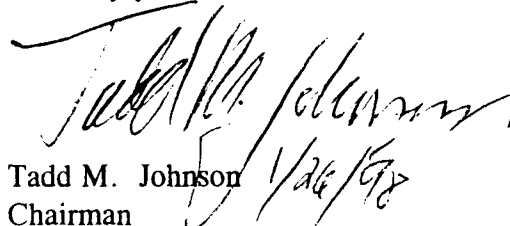 Tadd M. Johnson
Tadd M. Johnson 1/26/98
Chairman